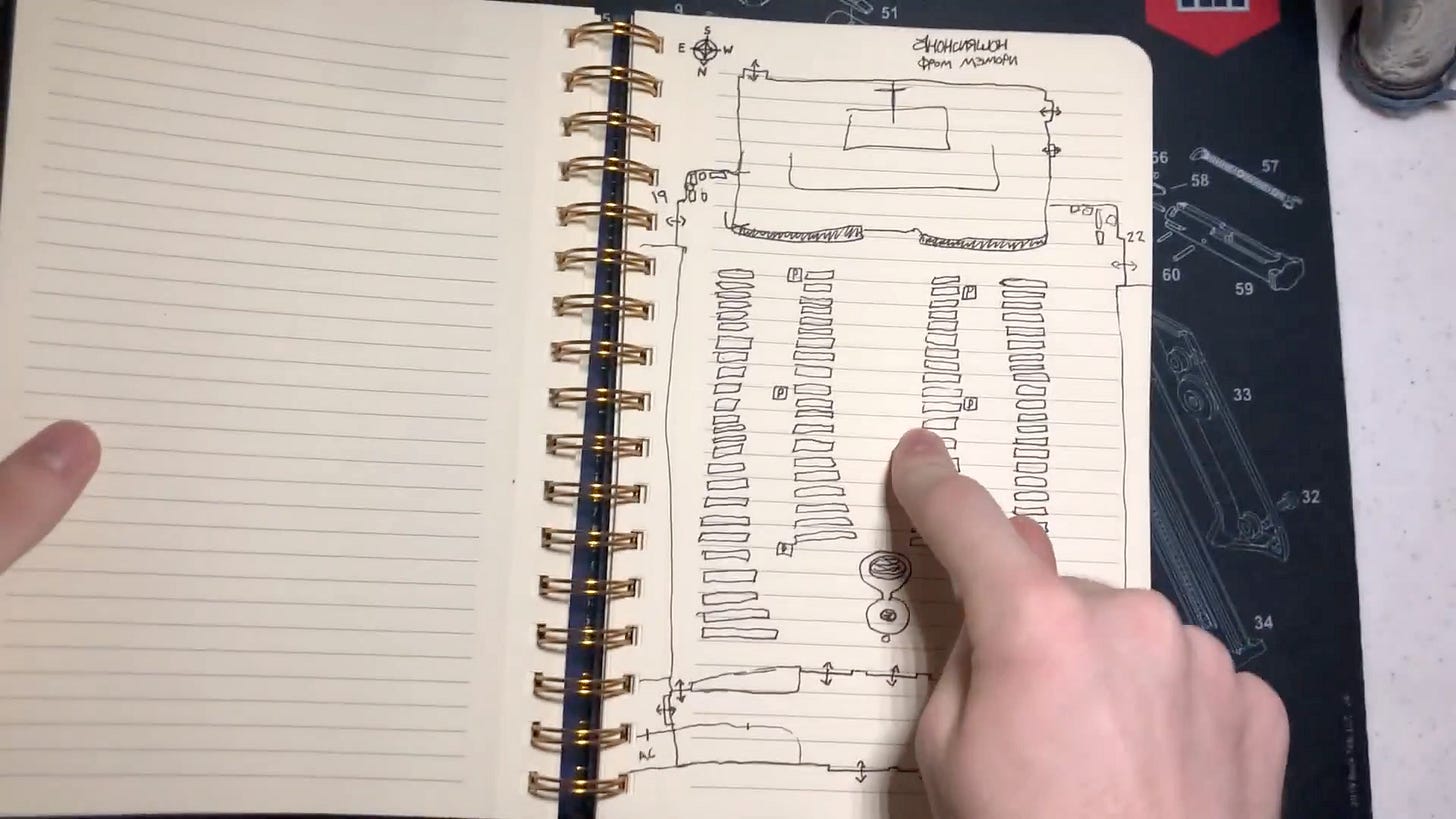 9
51
S
E W
N
Анонсияшон
фром мэмори
56
57
58
19
22
60
59
P
P
33
P
P
32
P
34
AC